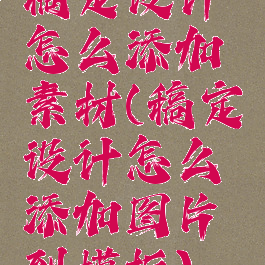 搞定设计
怎么添加
素材(稿定
设计怎么
添加图片
到模板)